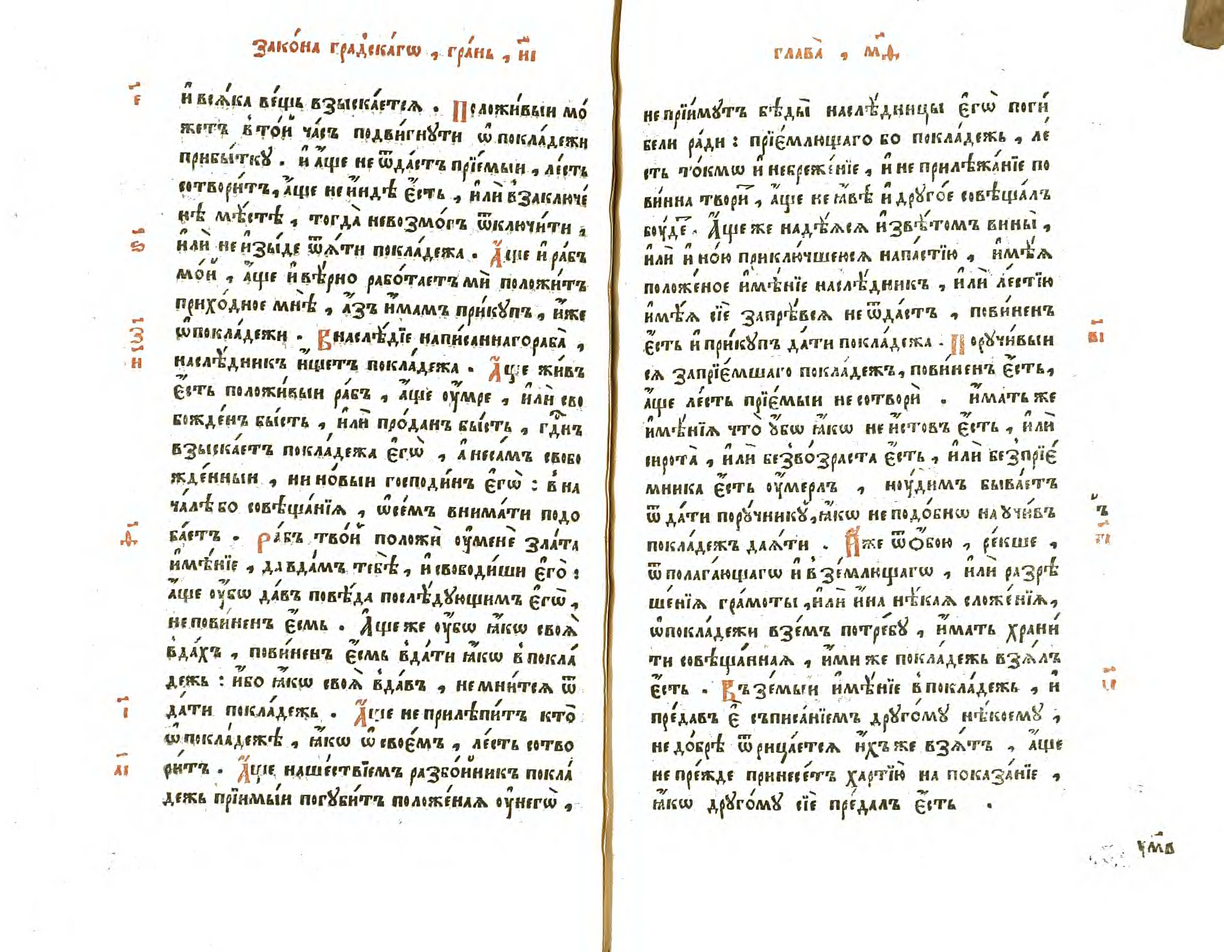 Зако́на гра́дскагѡ , гра́нь , и҃і
є҃
и҆ всѧ́ка ве́щь взыска́етсѧ . Положи́выи мо́
жетъ в то́й ча́съ подви́гнути ѡ҆ покла́дежи
прибы́тку . и҆ а҆́ще не ѿда́стъ прїе́мыи , ле́сть
сотвори́тъ, а҆́ще не и҆́ндѣ є҆́сть , и҆лѝ в заключе́
нѣ мѣ́стѣ , тогда̀ невозмо́гъ ѿключи́ти ,
ѕ҃
и҆лѝ не и҆зы́де ѿѧ́ти покла́дежа . А҆́ще и҆ ра́бъ
мо́й , а҆́ще и҆ вѣ́рно рабо́таетъ мѝ положи́тъ
прихо́дное мнѣ̀ , а҆́зъ и҆́мамъ при́купъ , и҆́же
з҃
ѡ҆ покла́дежи . В наслѣ́дїе напи́саннаго раба̀ ,
и҃
наслѣ́дникъ и҆́щетъ покла́дежа . А҆́ще жи́въ
є҆́сть положи́выи ра́бъ , а҆́ще ѹ҆́мре , и҆лѝ сво
божде́нъ бы́сть , и҆лѝ про́данъ бы́сть , гд҃нъ
взыска́етъ покла́дежа є҆гѡ̀ , а҆ не са́мъ свобо
жде́нныи , ни но́выи господи́нъ є҆гѡ̀ : в на
ча́лѣ бо совѣща́нїѧ , ѡ҆ се́мъ внима́ти подо
ѳ҃
ба́етъ . Ра́бъ тво́й положѝ ѹ҆ менѐ зла́та
и҆мѣ́нїе , да вда́мъ тебѣ̀ , и҆ свободи́ши є҆го̀ :
а҆́ще ѹ҆́бѡ да́въ повѣ́да послѣ́дующимъ є҆гѡ̀ ,
не пови́ненъ є҆́смь . А҆́ще же ѹ҆́бѡ ꙗ҆́кѡ своѧ̀
вда́хъ , пови́ненъ є҆́смь вда́ти ꙗ҆́кѡ в покла́
дежь : и҆́бо ꙗ҆́кѡ своѧ̀ вда́въ , не мни́тсѧ ѿ
і҃
да́ти покла́дежь . А҆́ще не прилѣпи́тъ кто̀
ѡ҆ покла́дежѣ , ꙗ҆́кѡ ѡ҆ свое́мъ , ле́сть сотво
аі҃
ри́тъ . А҆́ще наше́ствїемъ разбо́йникъ покла́
дежь прїи́мыи погуби́тъ положе́наѧ ѹ҆ него̀ ,
глава̀ , м҃ѳ
не прїи́мутъ бѣды̀ наслѣ́дницы є҆гѡ̀ поги́
бели ра́ди : прїе́млющаго бо покла́дежь , ле́
сть то́кмѡ и҆ небреже́нїе , и҆ не прилѣжа́нїе по
ви́нна твори́т , а҆́ще не ꙗ҆́вѣ и҆ друго́е совѣща́лъ
бѹ́де . А҆́ще же надѣ́ѧсѧ и҆звѣ́томъ вины̀ ,
и҆лѝ и҆но́ю приклю́чшеюсѧ напа́стїю , и҆мѣ́ѧ
положе́ное и҆мѣ́нїе наслѣ́дникъ , и҆лѝ ле́стїю
и҆мѣ́ѧ сїѐ запрѣ́всѧ не ѿда́стъ , пови́ненъ
ві҃
є҆́сть и҆ при́купъ да́ти покла́дежа . Поручи́выи
сѧ запрїе́мшаго покла́дежъ, пови́ненъ є҆́сть,
а҆́ще ле́сть прїе́мыи не сотворѝ . и҆́мать же
и҆мѣ́нїѧ что̀ ѹ҆́бѡ ꙗ҆́кѡ не и҆́стовъ є҆́сть , и҆лѝ
сирота̀ , и҆лѝ без во́зраста є҆́сть , и҆лѝ без прїе́
мника є҆́сть ѹ҆́мерлъ , ну́димъ быва́етъ
ѿда́ти пору́чнику, ꙗ҆́кѡ не подо́бнѡ научи́въ
гі҃
покла́дежъ даѧ́ти . Ꙗ҆́же ѿ ѻ҆бою̀ , ре́кше ,
ѿ полага́ющагѡ и҆ взе́млющагѡ , и҆лѝ разрѣ
ше́нїѧ гра́моты , и҆лѝ и҆́на нѣ́каѧ сложе́нїѧ,
ѡ҆ покла́дежи взе́мъ потре́бу , и҆́мать храни́
ти совѣща́ннаѧ , и҆́ми же покла́дежь взѧ́лъ
ді҃
є҆́сть . Въ зе́мыи и҆мѣ́нїе в покла́дежь , и҆
преда́въ є҆̀ съписа́нїемъ друго́му нѣ́коему ,
не до́брѣ ѿрица́етсѧ и҆́хъ же взѧ́тъ , а҆́ще
не пре́жде принесе́тъ ха́ртїю на показа́нїе ,
ꙗ҆́кѡ друго́му сїѐ преда́лъ є҆́сть .
ум҃в